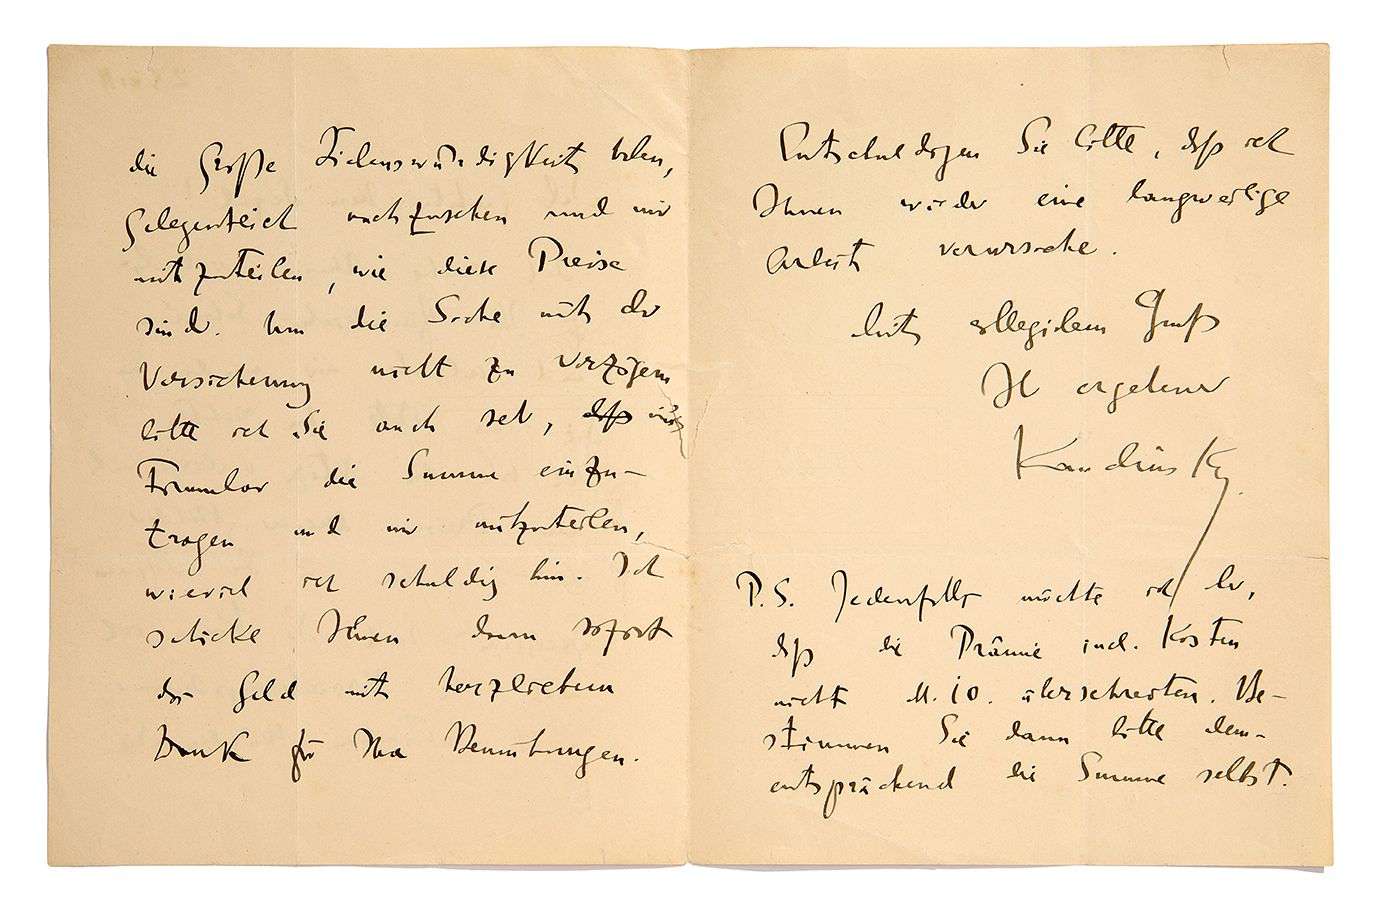 die Große Liebenswürdigkeit haben,
gelegentlich nachzusehen und mir
mitzuteilen, wie diese Preise
sind. Um die Sache mit der
Versicherung nicht zu verzögern
bitte ich Sie auch sehr, daß ins
Formular die Summe einzu-
tragen und mir mitzuteilen,
wieviel ich schuldig bin. Ich
schicke Ihnen dann sofort
das Geld mit herzlichem
Dank für Ihre Bemühungen.
Entschuldigen Sie bitte, daß ich
Ihnen wieder eine langweilige
Arbeit verursache.
Mit kollegialem Gruß
Ihr ergebener
Kandinsky.
P.S. Jedenfalls möchte ich
daß die Prämie incl. Kosten
nicht M. 10. überschreiten. Be-
stimmen Sie dann bitte dem-
entsprächend die Summe selbst.